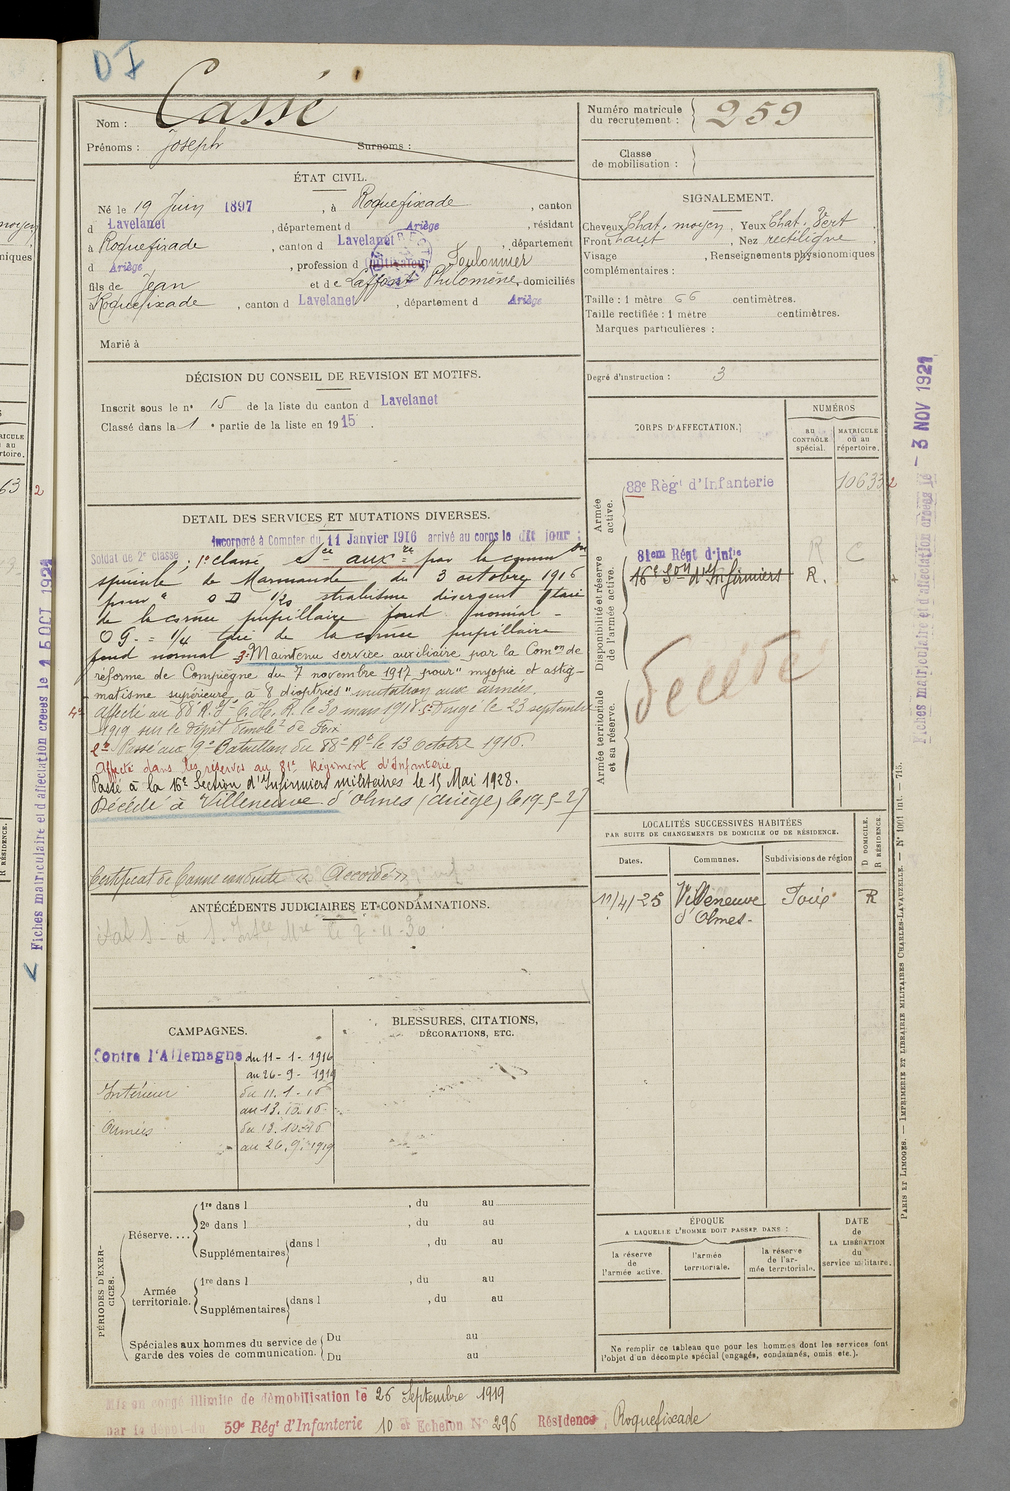 DI
Nom : Cassé
Prénoms : Joseph Surnoms :
Numéro matricule du recrutement : 259
Classe de mobilisation :
ÉTAT CIVIL.
Né le 19 Juin 1897, à Roquefixade, canton
d Lavelanet, département d Ariège, résidant
à Roquefixade, canton d Lavelanet, département
d Ariège, profession d Cultivateur Foulonnier
fils de Jean et de Laffont Philomène, domiciliés
Roquefixade, canton d Lavelanet, département d Ariège
Marié à
SIGNALEMENT.
Cheveux Chat. moyen, Yeux Chat. Vert,
Front haut, Nez rectiligne
Visage , Renseignements physionomiques
complémentaires :
Taille : 1 mètre 66 centimètres.
Taille rectifiée : 1 mètre centimètres.
Marques particulières :
Degré d'instruction : 3
DÉCISION DU CONSEIL DE REVISION ET MOTIFS.
Inscrit sous le n° 15 de la liste du canton d Lavelanet
Classé dans la 1 e partie de la liste en 1915.
CORPS D'AFFECTATION.
NUMÉROS
AU CONTRÔLE spécial.
MATRICULE OU AU répertoire.
Armée active.
88e Régt d'Infanterie 10633
Disponibilité et réserve de l'armée active.
R C
81em Régt d'infie
16e Son d'Infirmiers R.
Armée territoriale et sa réserve.
Décédé
DETAIL DES SERVICES ET MUTATIONS DIVERSES.
Incorporé à Compter du 11 Janvier 1916 arrivé au corps le dit jour ;
Soldat de 2e classe ; 1° classé Sce auxre par la common
spéciale de Marmande du 3 octobre 1916
pour " O D 1/20 strabisme divergent taie
de la cornée pupillaire fond normal -
O G. = 1/4 taie de la cornée pupillaire
fond normal 3° Maintenu service auxiliaire par la Comon de
réforme de Compiegne du 7 novembre 1917 pour "myopie et astig-
matisme supérieure à 8 dioptries" mutation aux armées.
4° Affecté au 88e R.I. C.H.R. le 30 mars 1918 5° Dirigé le 23 septembre
1919 sur le dépôt démobr de Foix
2° Passé au 9e Bataillon du 88e Rt le 13 octobre 1916.
Affecté dans les réserves au 81e Régiment d'Infanterie
Passé à la 16e Section d'Infirmiers militaires le 15 Mai 1928.
Décédé à Villeneuve d'Olmes (Ariège) le 19-5-27
Certificat de Bonne conduite "Accordé"
LOCALITÉS SUCCESSIVES HABITÉES
PAR SUITE DE CHANGEMENTS DE DOMICILE OU DE RÉSIDENCE.
Dates. Communes. Subdivisions de région
D DOMICILE.
R RÉSIDENCE.
11/4/25 Villeneuve d'Olmes - Foix R
ANTÉCÉDENTS JUDICIAIRES ET CONDAMNATIONS.
CAMPAGNES.
Contre l'Allemagne du 11 - 1 - 1916
au 26 - 9 - 1919
Intérieur du 11.1.16
au 13.10.16
Armées du 13.10.16
au 26.9.1919
BLESSURES, CITATIONS,
DÉCORATIONS, ETC.
PÉRIODES D'EXERCICES.
Réserve....
1re dans l , du au
2e dans l , du au
Supplémentaires dans l , du au
Armée territoriale.
1re dans l , du au
Supplémentaires dans l , du au
Spéciales aux hommes du service de garde des voies de communication.
Du au
Du au
ÉPOQUE
A LAQUELLE L'HOMME DOIT PASSER DANS :
la réserve de l'armée active.
l'armée territoriale.
la réserve de l'armée territoriale.
DATE de LA LIBÉRATION du service militaire.
Ne remplir ce tableau que pour les hommes dont les services font
l'objet d'un décompte spécial (engagés, condamnés, omis etc.).
Mis en congé illimité de démobilisation le 26 Septembre 1919
par le dépôt du 59e Régt d'Infanterie 10 e Echelon N° 296 Résidence : Roquefixade
Fiches matriculaire et d'affectation créées le - 3 NOV 1921
Fiches matriculaire et d'affectation créées le 15 OCT 1921
PARIS ET LIMOGES. — IMPRIMERIE ET LIBRAIRIE MILITAIRES CHARLES-LAVAUZELLE. — N° 1001 int. — 715.